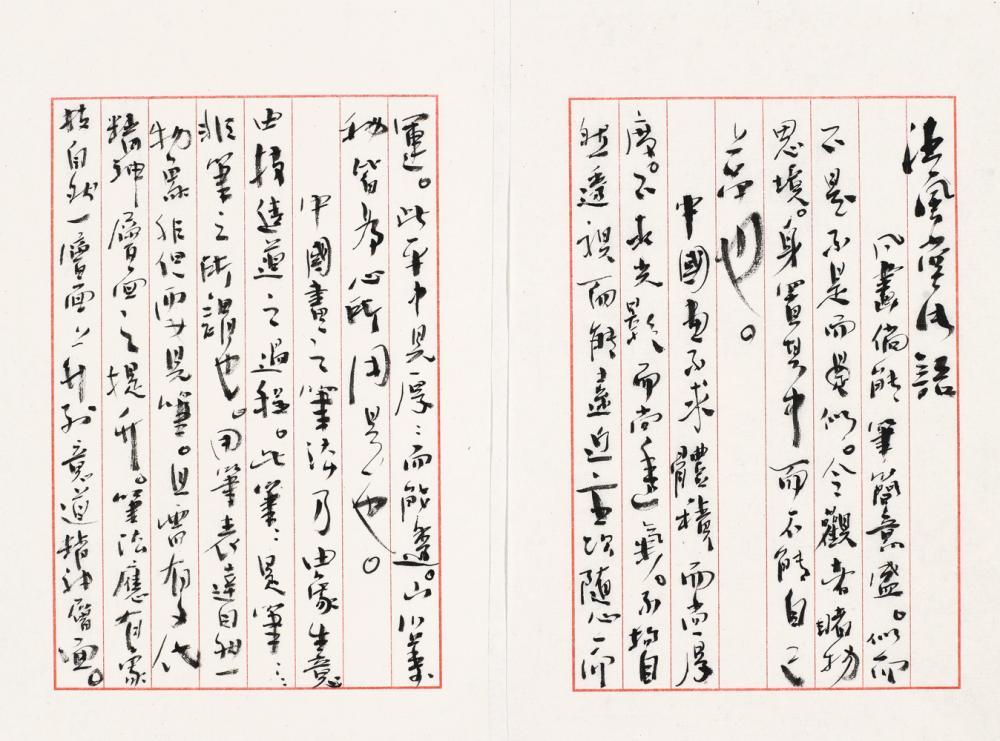 風堂語
畫倘能筆簡意盛。似而
不是不是而是似。令觀者睹物
思境。身置其中而不能自已
上品也。
中國畫不求體積而尚厚
度。不求光影而尚氣。不拘自
然透視而能遠近高次隨心而
運。此平中見厚厚而能透。山川萬
物皆為心所用是也。
中國畫之筆法乃由象生意
由技進道之過程。此筆筆見筆
非筆之所謂也。用筆表達自然
物象非但要見筆。且需有文化
精神層面之提升。筆法應有象
自然一層面上升到意道精神層面。